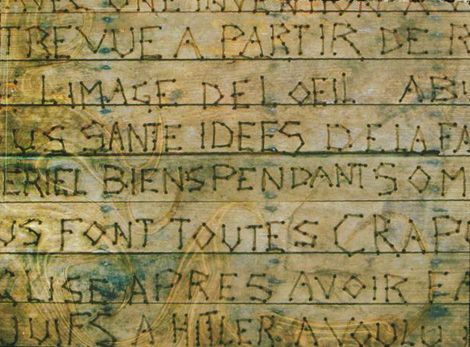 VEC UNE INVENTION A
TREVUE A PARTIR DE R
L IMAGE DE L OEIL ABU
US SANTE IDEES DE LA FA
ERIEL BIENSPENDANT SOM
US FONT TOUTES CRAP
GLISE APRES AVOIR FA
JUIFS A HITLER A VOULU